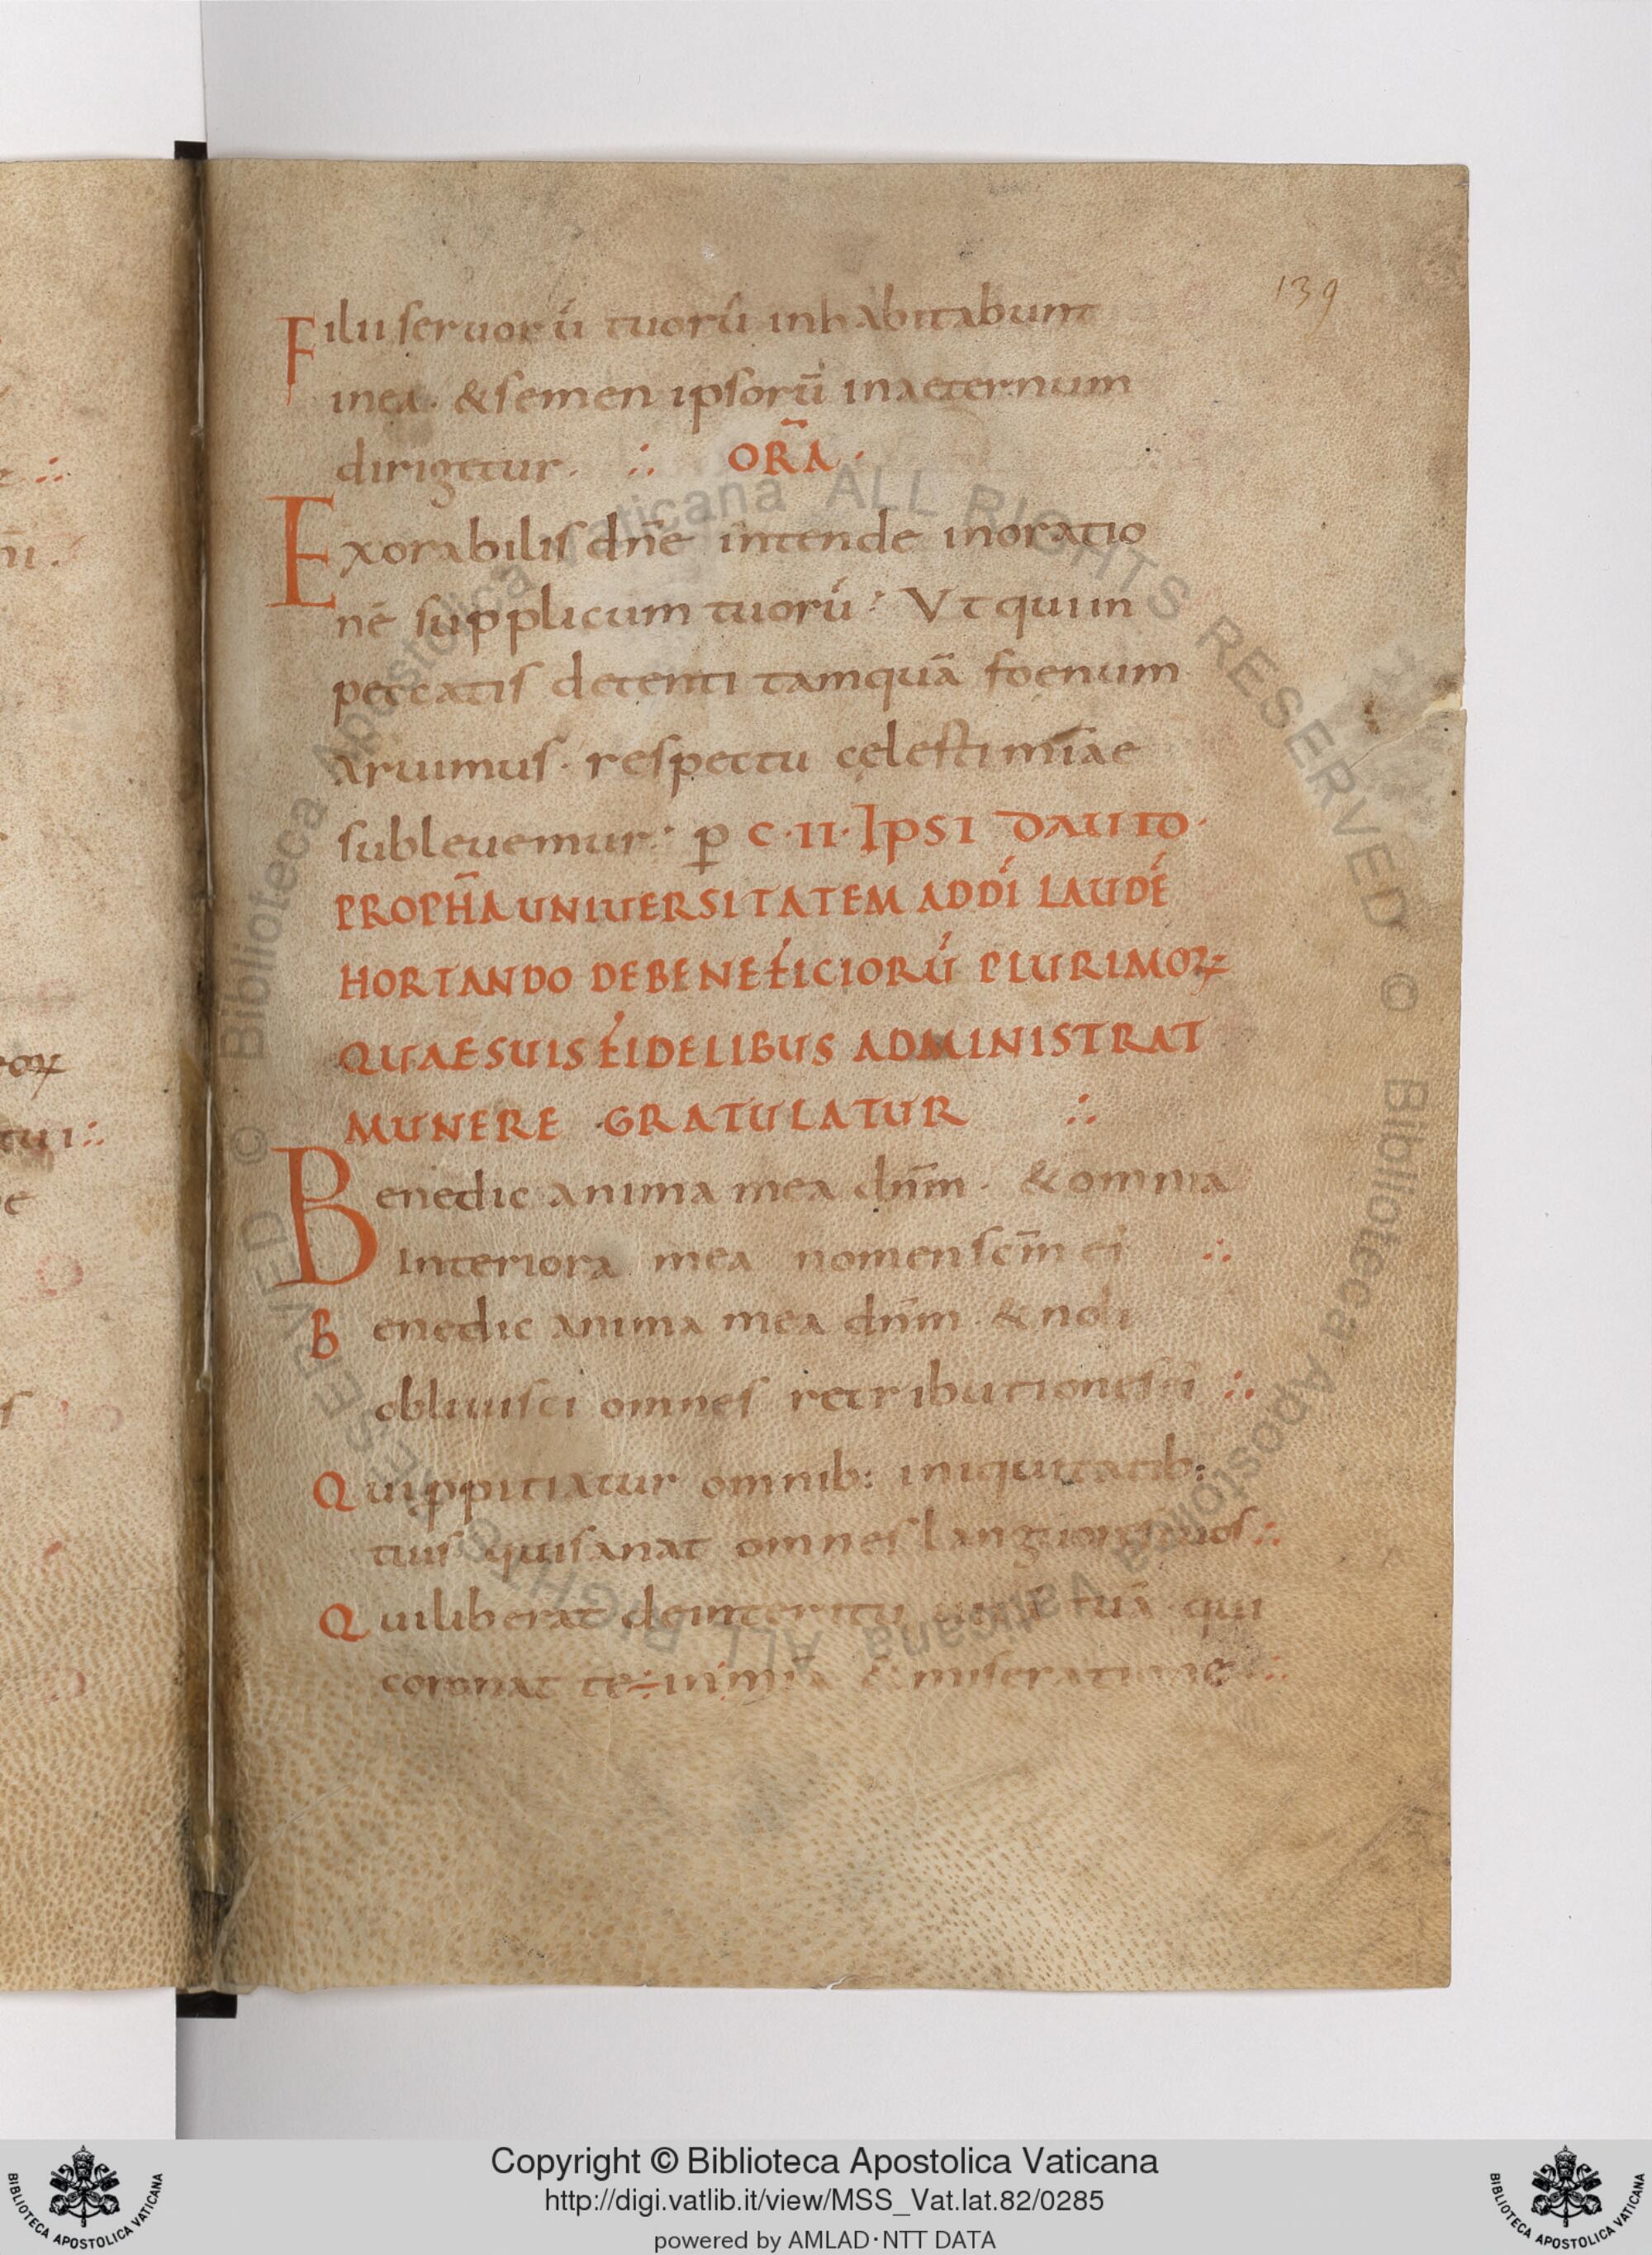 139
Filii seruorū tuorū inhabitabunt
inea. & semen ipsorū inaeternum
dirigetur. ∴ ORĀ.
Exorabilis dn̄e intende inoratio
nē supplicum tuorū: Vt quiin
peccatis detenti tamquā foenum
aruimus. respectu cęlesti mīae
subleuemur: p̄ C·II· IPSI DAUID·
PROPH̄A UNIUERSITATEM ADDĪ LAUDĒ
HORTANDO DEBENEFICIORŪ PLURIMOꝝ
QUAESUIS FIDELIBUS ADMINISTRAT
MUNERE GRATULATUR ∴
Benedic anima mea dn̄m. & omnia
Interiora mea nomen sc̄m ei ∴
Benedic anima mea dn̄m. & noli
obliuisci omnes retributiones ei ∴
Quiꝓpitiatur omnib: iniquitatib:
tuis quisanat omnes languores tuos ∴
Quiliberat deinteritu uitā tuā. qui
coronat te ÷ in mīa & miseratione ∴
© Biblioteca Apostolica Vaticana ALL RIGHTS RESERVED © Biblioteca Apostolica Vaticana ALL RIGHTS RESERVED
Copyright © Biblioteca Apostolica Vaticana
http://digi.vatlib.it/view/MSS_Vat.lat.82/0285
powered by AMLAD·NTT DATA
BIBLIOTECA APOSTOLICA VATICANA
BIBLIOTECA APOSTOLICA VATICANA